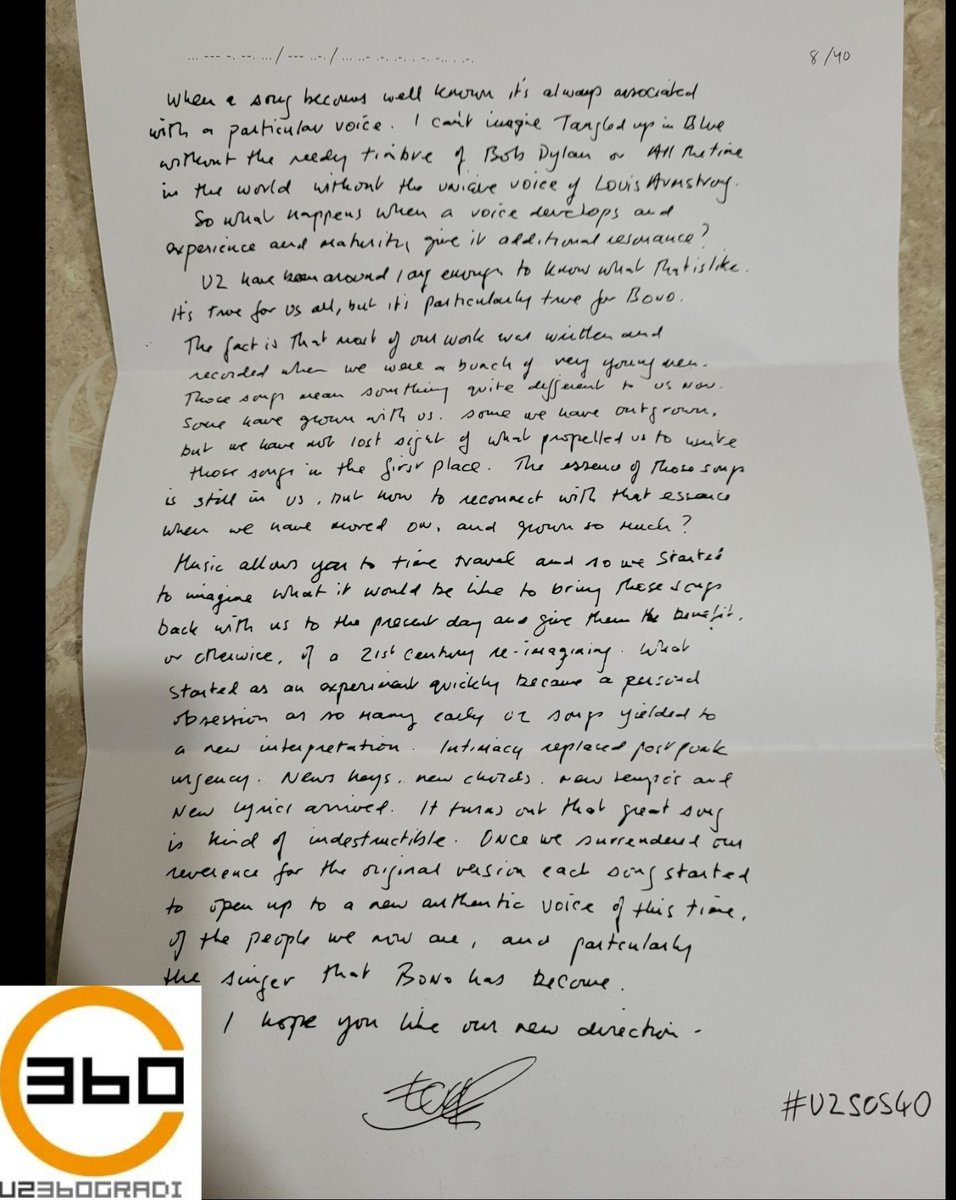 ... --- -. --. .../ --- ..-./ ... ..- .-. .-. . -. -.. . .-.
8/40
When a song becomes well known it's always associated
with a particular voice. I can't imagine Tangled up in Blue
without the reedy timbre of Bob Dylan or All the time
in the world without the unique voice of Louis Armstrong.
So what happens when a voice develops and
experience and maturity, give it additional resonance?
U2 have been around long enough to know what that is like.
It's true for us all, but it's particularly true for Bono.
The fact is that most of our work was written and
recorded when we were a bunch of very young men.
Those songs mean something quite different to us now.
Some have grown with us. Some we have outgrown,
but we have not lost sight of what propelled us to write
those songs in the first place. The essence of those songs
is still in us, but how to reconnect with that essence
when we have moved on, and grown so much?
Music allows you to time travel and so we started
to imagine what it would be like to bring these songs
back with us to the present day and give them the benefit,
or otherwise, of a 21st century re-imagining. What
started as an experiment quickly became a personal
obsession as so many early U2 songs yielded to
a new interpretation. Intimacy replaced post punk
urgency. News keys. new chords. new tempo's and
New lyrics arrived. It turns out that great song
is kind of indestructible. Once we surrendered our
reverence for the original version each song started
to open up to a new authentic voice of this time,
of the people we now are, and particularly
the singer that Bono has become.
I hope you like our new direction -
#U2SOS40
360
U2360GRADI